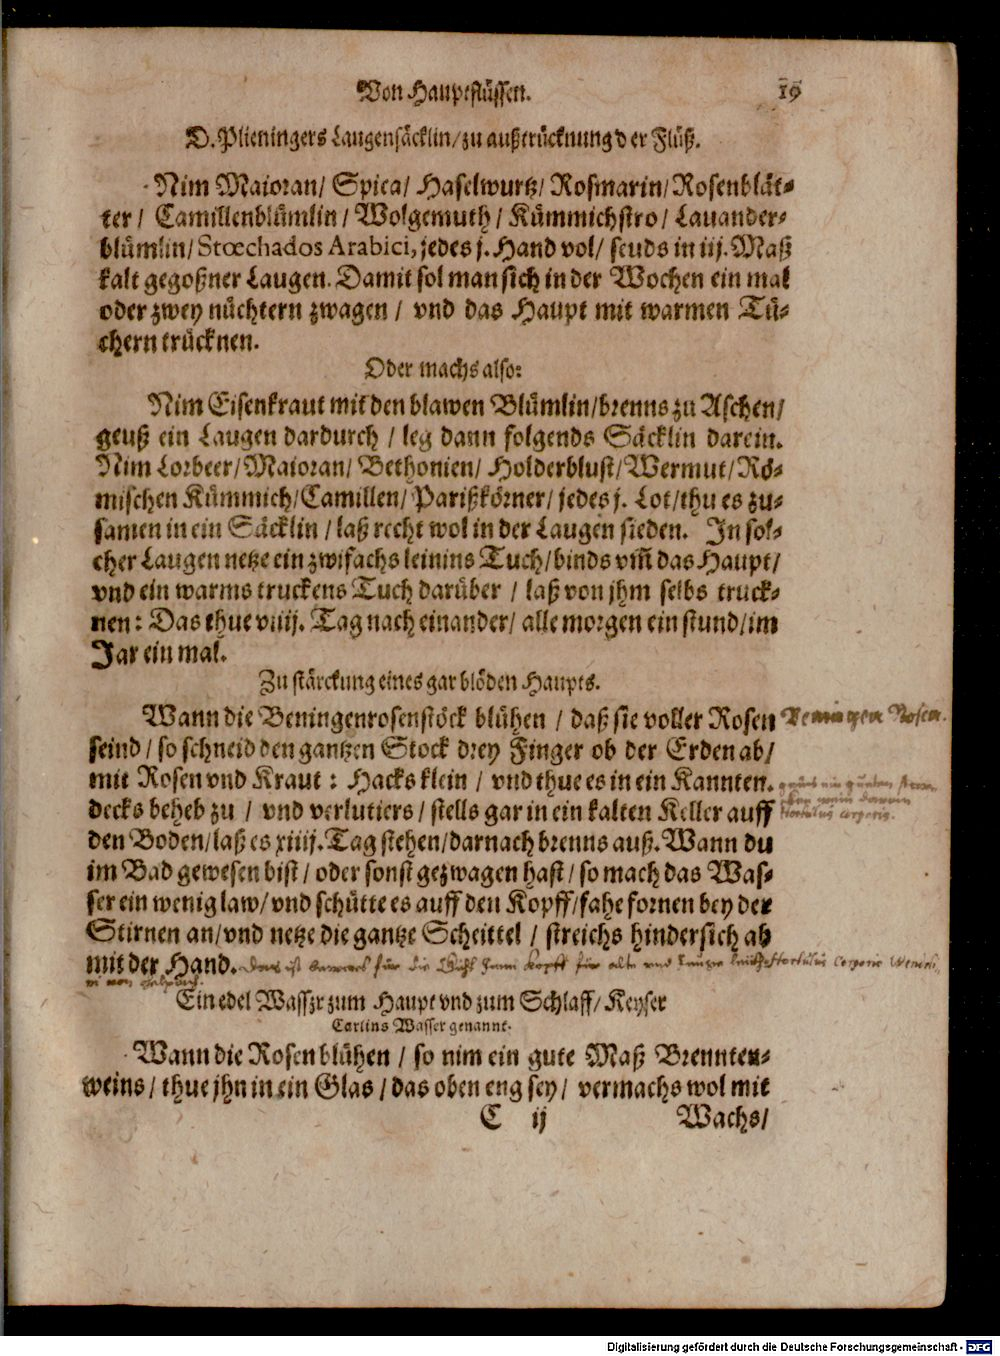 Von Hauptflüssen. 19
D. Plieningers Laugensäcklin/ zu außtrücknung der Flüß.
Nim Maioran/ Spica/ Haselwurtz/ Rosmarin/ Rosenblät-
ter/ Camillenblümlin/ Wolgemuth/ Kümmichstro/ Lauander-
blümlin/ Stœchados Arabici, jedes j. Hand vol/ seuds in iij. Maß
kalt gegoßner Laugen. Damit sol man sich in der Wochen ein mal
oder zwey nüchtern zwagen/ vnd das Haupt mit warmen Tü-
chern trücknen.
Oder machs also:
Nim Eisenkraut mit den blawen Blümlin/ brenns zu Aschen/
geuß ein Laugen dardurch/ leg dann folgends Säcklin darein.
Nim Lorbeer/ Maioran/ Bethonien/ Holderblust/ Wermut/ Rö-
mischen Kümmich/ Camillen/ Parißkörner/ jedes j. Lot/ thu es zu-
samen in ein Säcklin/ laß recht wol in der Laugen sieden. In sol-
cher Laugen netze ein zwifachs leinins Tuch/ binds vm̃ das Haupt/
vnd ein warms truckens Tuch darüber/ laß von jhm selbs truck-
nen: Das thue viiij. Tag nach einander/ alle morgen ein stund/ im
Jar ein mal.
Zu stärckung eines gar blöden Haupts.
Wann die Beningenrosenstöck blühen/ daß sie voller Rosen
Peningen Rosen.
seind/ so schneid den gantzen Stock drey Finger ob der Erden ab/
mit Rosen vnd Kraut: Hacks klein/ vnd thue es in ein Kannten.
decks beheb zu/ vnd verlutiers/ stells gar in ein kalten Keller auff
den Boden/ laß es xiiij. Tag stehen/ darnach brenns auß. Wann du
im Bad gewesen bist/ oder sonst gezwagen hast/ so mach das Was-
ser ein wenig law/ vnd schütte es auff den Kopff/ fahe fornen bey der
Stirnen an/ vnd netze die gantze Scheittel/ streichs hindersich ab
mit der Hand.
Ein edel Wasser zum Haupt vnd zum Schlaff/ Keyser
Carlins Wasser genannt.
Wann die Rosen blühen/ so nim ein gute Maß Brennten-
weins/ thue jhn in ein Glas/ das oben eng sey/ vermachs wol mit
C ij Wachs/
Digitalisierung gefördert durch die Deutsche Forschungsgemeinschaft - DFG